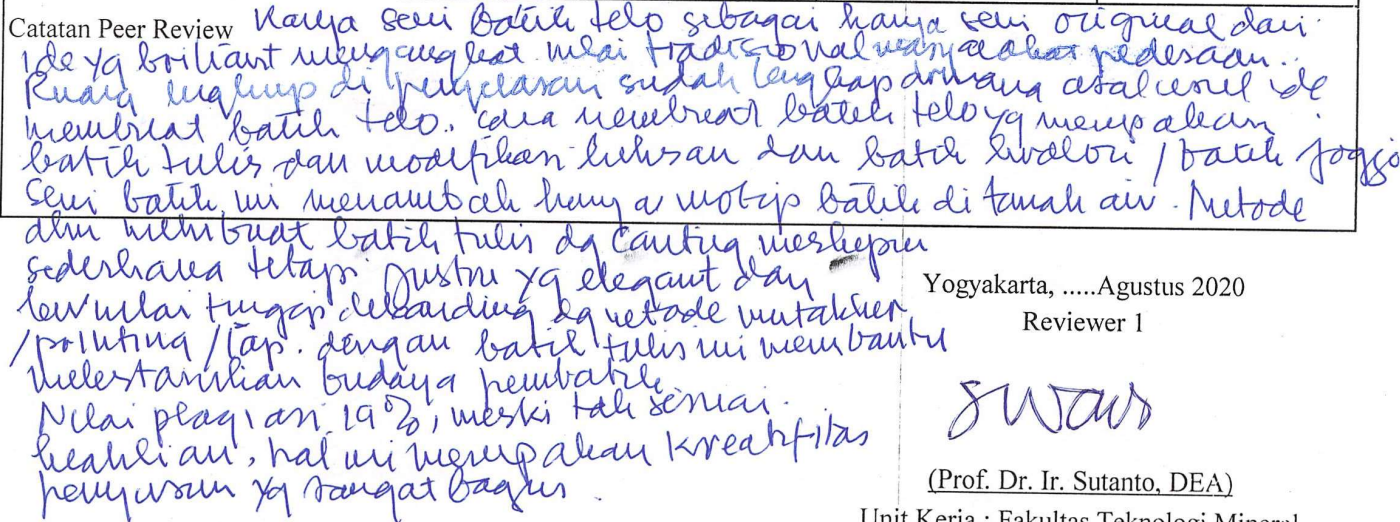 Catatan Peer Review Karya seni batik telo sebagai karya seni original dari
ide yg briliant mengangkat nilai tradisional masyarakat pedesaan.
Ruang lingkup di penjelasan sudah lengkap dimana asal usul ide
membuat batik telo. cara membuat batik telo yg merupakan
batik tulis dan modifikasi lukisan dan batik / batik Jogja
Seni batik ini menambah karya motip batik di tanah air. Metode
dlm membuat batik tulis dg canting meskipun
sederhana tetapi justru yg elegant dan
bernilai tinggi dibanding dg metode mutakhir
/printing/cap. dengan batik tulis ini membantu
melestarikan budaya pembatik.
Nilai plagiasi 19%, meski tak sesuai
keahlian, hal ini merupakan kreatifitas
penyusun yg sangat bagus.
Yogyakarta, .....Agustus 2020
Reviewer 1
(Prof. Dr. Ir. Sutanto, DEA)
Unit Kerja : Fakultas Teknologi Mineral